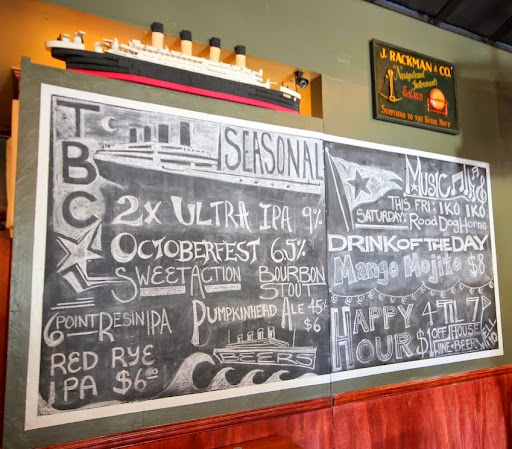 J. RACKMAN & CO.
Navigational
Instruments
Est. 1878
SUPPLIED TO THE ROYAL NAVY
TBC
SEASONAL
2X ULTRA IPA 9%
OCTOBERFEST 6.5%
SWEETACTION
BOURBON STOUT
6 POINT RESIN IPA
PUMPKINHEAD ALE 45
$6
RED RYE
IPA $6.00
BEERS
MUSIC
THIS FRI: IKO IKO
SATURDAY: Road Dog Horns
DRINK OF THE DAY
Mango Mojito $8
HAPPY HOUR
4 'TIL 7
$1 OFF HOUSE
WINE & BEER